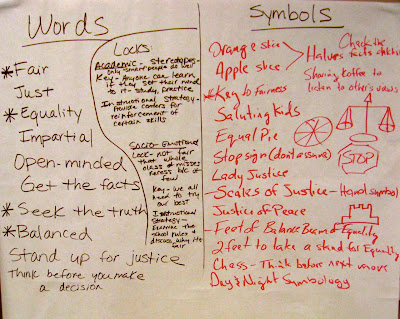 Words
* Fair
Just
* Equality
Impartial
Open-minded
Get the facts
* Seek the truth
* Balanced
Stand up for justice
Think before you make
a decision
Locks
Academic - Stereotypes-
only smart people do well
Key - Anyone can learn
if they set their mind
to it - study, practice
Instructional Strategy-
Provide centers for
reinforcement of
certain skills
Socio-Emotional
Lock - not fair
that whole
class misses
recess b/c of
few
Key - we all
need to try
our best
Instructional
Strategy-
Examine the
school rules &
discuss why it's
fair
Symbols
Orange slice
Apple slice
Halves
Check the
facts
* Key to fairness
Sharing Koffee to
listen to other's views
Saluting Kids
Equal Pie
Stop sign (don't assume)
STOP
Lady Justice
Scales of Justice - Hand symbol
Justice of Peace
- Feet of Balance Beam of Equality
2 feet to take a stand for Equality
Chess - Think before next move
Day & Night Symbology